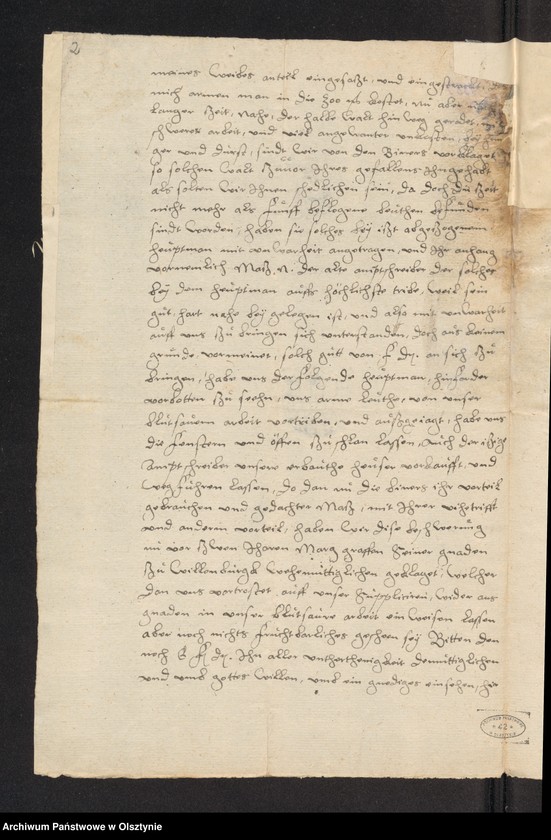 2
meines weibes anteil eingesatzt, und eingestreckt, 
mich armen man in die 300 mk kostet, nu aber 
langer Zeit, nahe, der halbe walt hin weg geradet, 
schwere arbeit, und viel angewanter unkosten, 
ger und durst, sindt wir von den Biners vorklaget
so solchen walt zuuor Ihres gefallens Ihngehabt
als solten wir Ihnen schedlichen sein, da doch zu Zeit
nicht mehr als funff beklagene beuthen befunden
sindt worden, haben sie solches bey itzt abgesagenem
heuptman mit unwarheit angetragen, und Ihr anhang
vornemlich Matz. N. der alte amptschreiber der solches
bey dem heuptman auffs höchlichste tribe, weil sein
gut hart nahe bey gelegen ist, und also mit unwarheit
auff uns zu bringen sich unterstanden, doch aus keinem
grunde, vermeinet, solch gutt von f. dh. an sich zu
bringen, habe uns der folgende heuptman, hinforder
vorbotten zu seehn, uns arme leuthe, von unser
blutsauern arbeit vortriben, und ausgeiagt, habe uns
die fenstern und öffen zu schlan lassen, auch der itzige
Ampt schreiber unsere erbauthe heuser vorkaufft, und
weg führen lassen, do dan nu die biners ihr vorteil
gebrauchen und gedachter Matz, mit Ihrer vihetrifft
und anderm vorteil, haben wir dise beschwerung
nu vor zwen Iharen Marggraffen seiner gnaden
zu Willenburgk wehemuttiglichen geklaget, welcher
dan uns vertrostet, auff unser suppliciren, wider aus
gnaden in unser blutsaure arbeit ein weisen lassen
aber noch nichts fruchtbarliches gescheen sey Bitten den
noch E f dh. Ihn aller untherthenigkeit demuttiglichen
und umb gottes willen, umb ein gnediges einsehen,
42
Archiwum Państwowe w Olsztynie